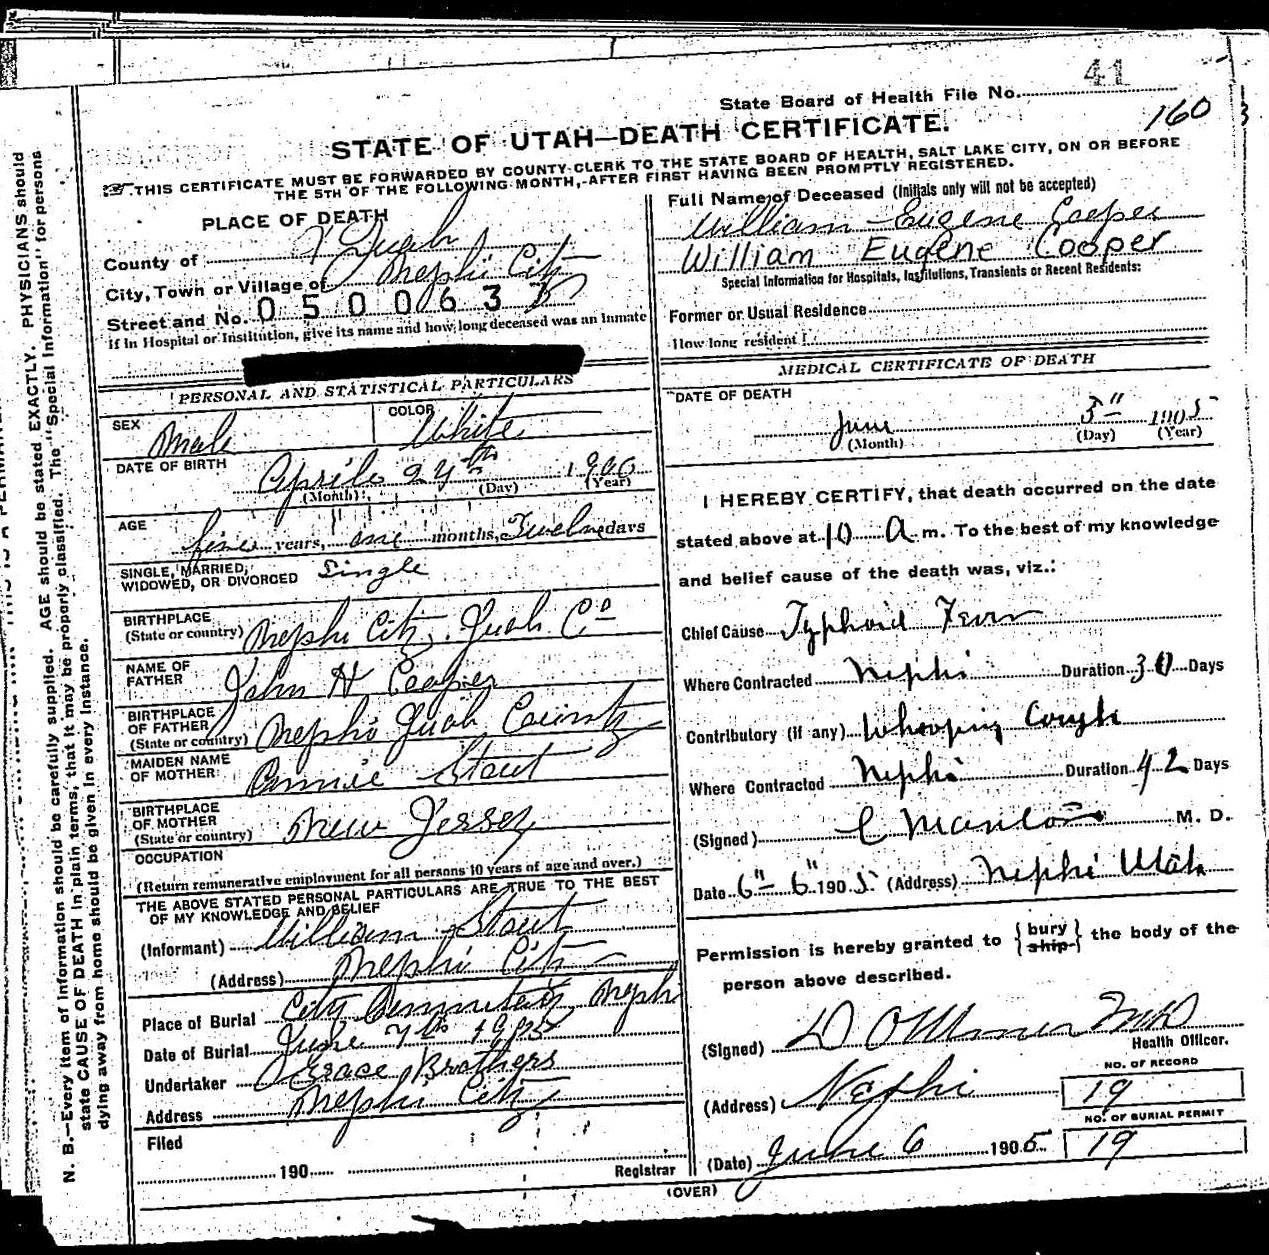 41
State Board of Health File No.
160
STATE OF UTAH—DEATH CERTIFICATE.
THIS CERTIFICATE MUST BE FORWARDED BY COUNTY CLERK TO THE STATE BOARD OF HEALTH, SALT LAKE CITY, ON OR BEFORE
THE 5TH OF THE FOLLOWING MONTH, AFTER FIRST HAVING BEEN PROMPTLY REGISTERED.
PLACE OF DEATH
County of Juab
City, Town or Village of Nephi City
Street and No. 0500637
If in Hospital or Institution, give its name and how long deceased was an Inmate
Full Name of Deceased (Initials only will not be accepted)
William Eugene Cooper
William Eugene Cooper
Special Information for Hospitals, Institutions, Transients or Recent Residents:
Former or Usual Residence
How long resident
PERSONAL AND STATISTICAL PARTICULARS
SEX Male
COLOR White
DATE OF BIRTH Aprile 24th 1900
(Month) (Day) (Year)
AGE five years, one months, Twelve days
SINGLE, MARRIED,
WIDOWED, OR DIVORCED Single
BIRTHPLACE
(State or country) Nephi City Juab Co
NAME OF
FATHER John H Cooper
BIRTHPLACE
OF FATHER
(State or country) Nephi Juab County
MAIDEN NAME
OF MOTHER Annie Stout
BIRTHPLACE
OF MOTHER
(State or country) New Jersey
OCCUPATION
(Return remunerative employment for all persons 10 years of age and over.)
THE ABOVE STATED PERSONAL PARTICULARS ARE TRUE TO THE BEST
OF MY KNOWLEDGE AND BELIEF
(Informant) William Stout
(Address) Nephi City
Place of Burial City Cemmetery Nephi
Date of Burial June 7th 1905
Undertaker Grace Brothers
Address Nephi City
Filed
190 Registrar
MEDICAL CERTIFICATE OF DEATH
DATE OF DEATH
June 5" 1905
(Month) (Day) (Year)
I HEREBY CERTIFY, that death occurred on the date
stated above at 10 A m. To the best of my knowledge
and belief cause of the death was, viz.:
Chief Cause Typhoid Fever
Where Contracted Nephi Duration 30 Days
Contributory (if any) Whooping Cough
Where Contracted Nephi Duration 42 Days
(Signed) M. D.
Date 6"- 6" 1905 (Address) Nephi Utah
Permission is hereby granted to {bury ship} the body of the
person above described.
(Signed)
Health Officer.
(Address) Nephi
NO. OF RECORD
19
NO. OF BURIAL PERMIT
19
(Date) June 6 1905
(OVER)
N. B.—Every item of information should be carefully supplied. AGE should be stated EXACTLY. PHYSICIANS should
state CAUSE OF DEATH in plain terms, that it may be properly classified. The "Special Information" for persons
dying away from home should be given in every instance.